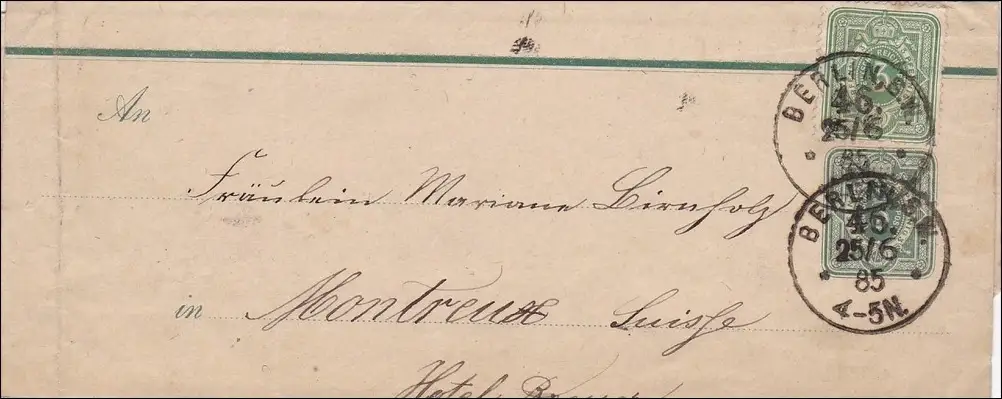 BERLIN, S.W.
46.
25/6
85
BERLIN, S.W.
46.
25/6
85
4-5N.
An
Fräulein Mariane Birnholz
in Montreux Suisse
Hotel